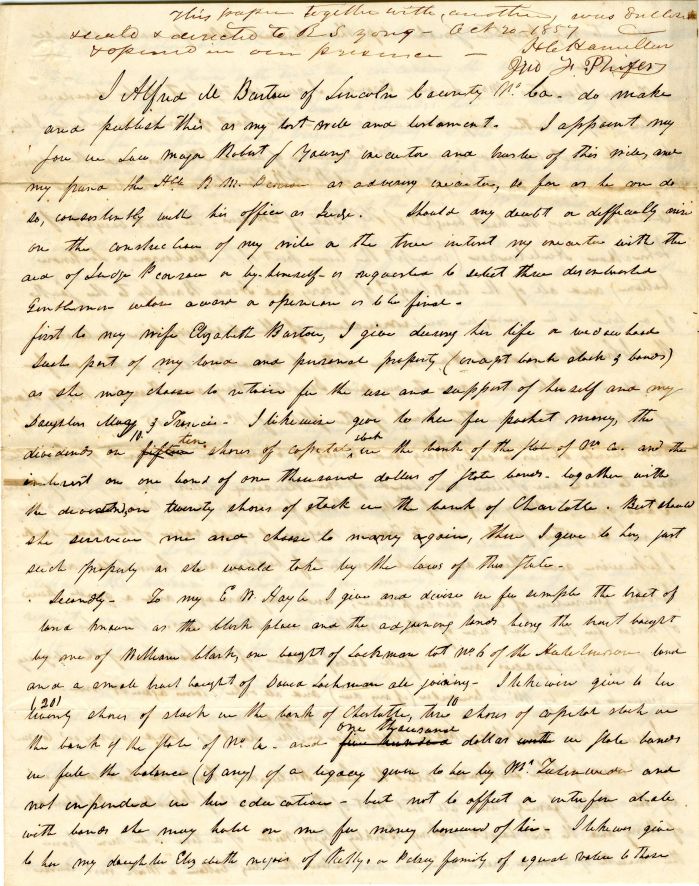 This paper together with another, was enclosed
& seald & directed to R S Young - Oct 20 1857
& opened in our presence - H C Hamilton
Jno F Phifer
I Alfred M Burton of Lincoln County No Ca. do make
and publish this as my last will and testament. I appoint my
Son in Law Major Robert S Young executor and trustee of this will, and
my friend the Hble R M Pearson as advising executor, so far as he can do
so, consistently with his office as Judge. Should any doubt or difficulty arise
on the construction of my will or the true intent my executor with the
aid of Judge Pearson or by himself is requested to select three disinterested
Gentlemen whose award or opinion is to be final.
First to my wife Elizabeth Burton, I give during her life or widowhood
such part of my land and personal property (except bank stock & bonds)
as she may choose to retain for the use and support of herself and my
Daughters Mary & Frances. I likewise give to her for pocket money, the
dividends on fifteen ten 10 shares of capital stock in the bank of the State of No Ca. and the
interest on one bond of one thousand dollars of State bonds. together with
the dividends on twenty shares of stock in the bank of Charlotte. But should
she survive me and choose to marry again, then I give to her, just
such property as she would take by the laws of this State.
Secondly - To my E W Hayle I give and devise in fee simple the tract of
land known as the Clark place and the adjoining lands being the tract bought
by me of William Clark, one bought of Lockman lot No 6 of the land
and a small tract bought of David Lockman all joining - I likewise give to her
twenty (20) shares of stock in the bank of Charlotte, 10 shares of capital stock in
the bank of the State of No Ca. and five hundred one thousand dollar with in State bonds
in full the balance (if any) of a legacy given to her by Mr. and
not expended in her education - but not to affect or interfere at all
with bonds she may hold on me for money borrowed of her - I likewise give
to her my daughter Elizabeth negros of Kelly or family of equal value to those